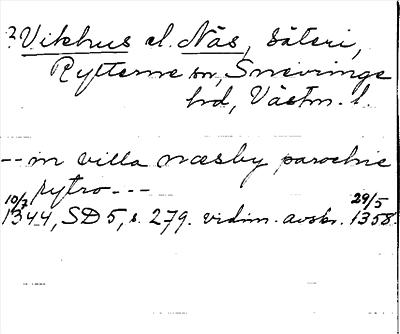 ? Vikhus el. Näs, Säteri,
Rytterne sn, Snevringe
hd, Västm. l.
-- in villa næsby parochie
rytro ---
10/7 1344, SD 5, s. 279. vidim. avskr. 29/5 1358.